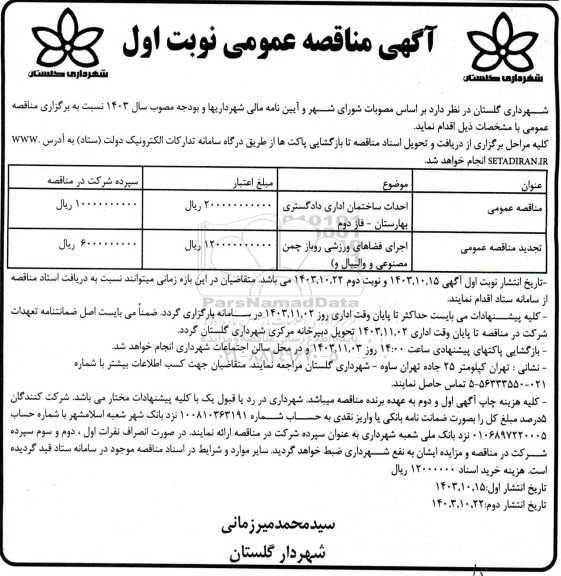 آگهی مناقصه عمومی نوبت اول
شهرداری گلستان
شهرداری گلستان
شهرداری گلستان در نظر دارد بر اساس مصوبات شورای شهر و آیین نامه مالی شهرداریها و بودجه مصوب سال ۱۴۰۳ نسبت به برگزاری مناقصه
عمومی با مشخصات ذیل اقدام نماید.
کلیه مراحل برگزاری از دریافت و تحویل اسناد مناقصه تا بازگشایی پاکت ها از طریق درگاه سامانه تدارکات الکترونیک دولت (ستاد) به آدرس WWW.
SETADIRAN.IR انجام خواهد شد.
عنوان موضوع مبلغ اعتبار سپرده شرکت در مناقصه
مناقصه عمومی احداث ساختمان اداری دادگستری ۲۰۰۰۰۰۰۰۰۰۰۰ ریال ۱۰۰۰۰۰۰۰۰۰۰ ریال
بهارستان - فاز دوم
تجدید مناقصه عمومی اجرای فضاهای ورزشی روباز چمن ۱۲۰۰۰۰۰۰۰۰۰۰ ریال ۶۰۰۰۰۰۰۰۰۰ ریال
مصنوعی و والیبال و)
-تاریخ انتشار نوبت اول آگهی ۱۴۰۳،۱۰،۱۵ و نوبت دوم ۱۴۰۳،۱۰،۲۲ می باشد. متقاضیان در این بازه زمانی میتوانند نسبت به دریافت اسناد مناقصه
از سامانه ستاد اقدام نمایند.
- کلیه پیشنهادات می بایست حداکثر تا پایان وقت اداری روز ۱۴۰۳،۱۱،۰۲ در سامانه بارگزاری گردد. ضمناً می بایست اصل ضمانتنامه تعهدات
شرکت در مناقصه تا پایان وقت اداری ۱۴۰۳،۱۱،۰۲ تحویل دبیرخانه مرکزی شهرداری گلستان گردد.
- بازگشایی پاکتهای پیشنهادی ساعت ۱۴:۰۰ روز ۱۴۰۳،۱۱،۰۳ و در محل سالن اجتماعات شهرداری انجام خواهد شد.
- نشانی : تهران کیلومتر ۲۵ جاده تهران ساوه - شهرداری گلستان مراجعه نمایند. متقاضیان جهت کسب اطلاعات بیشتر با شماره
۰۲۱-۵۶۳۳۳۵۵۰-۵ تماس حاصل نمایند.
- کلیه هزینه چاپ آگهی اول و دوم به عهده برنده مناقصه میباشد. شهرداری در رد یا قبول یک یا کلیه پیشنهادات مختار می باشد. شرکت کنندگان
۵درصد مبلغ کل را بصورت ضمانت نامه بانکی یا واریز نقدی به حساب شماره ۱۰۰۸۱۰۳۶۳۱۹۱ نزد بانک شهر شعبه اسلامشهر با شماره حساب
۰۱۰۶۸۹۷۲۲۰۰۰۵ نزد بانک ملی شعبه شهرداری به عنوان سپرده شرکت در مناقصه ارائه نمایند. در صورت انصراف نفرات اول ، دوم و سوم سپرده
شرکت در مناقصه و مزایده ایشان به نفع شهرداری ضبط خواهد گردید. سایر موارد و شرایط در اسناد مناقصه موجود در سامانه ستاد قید گردیده
است. هزینه خرید اسناد ۱۲۰۰۰۰۰۰ ریال
تاریخ انتشار اول:۱۴۰۳،۱۰،۱۵
تاریخ انتشار دوم:۱۴۰۳،۱۰،۲۲
سیدمحمدمیرزمانی
شهردار گلستان
ParsNamadData